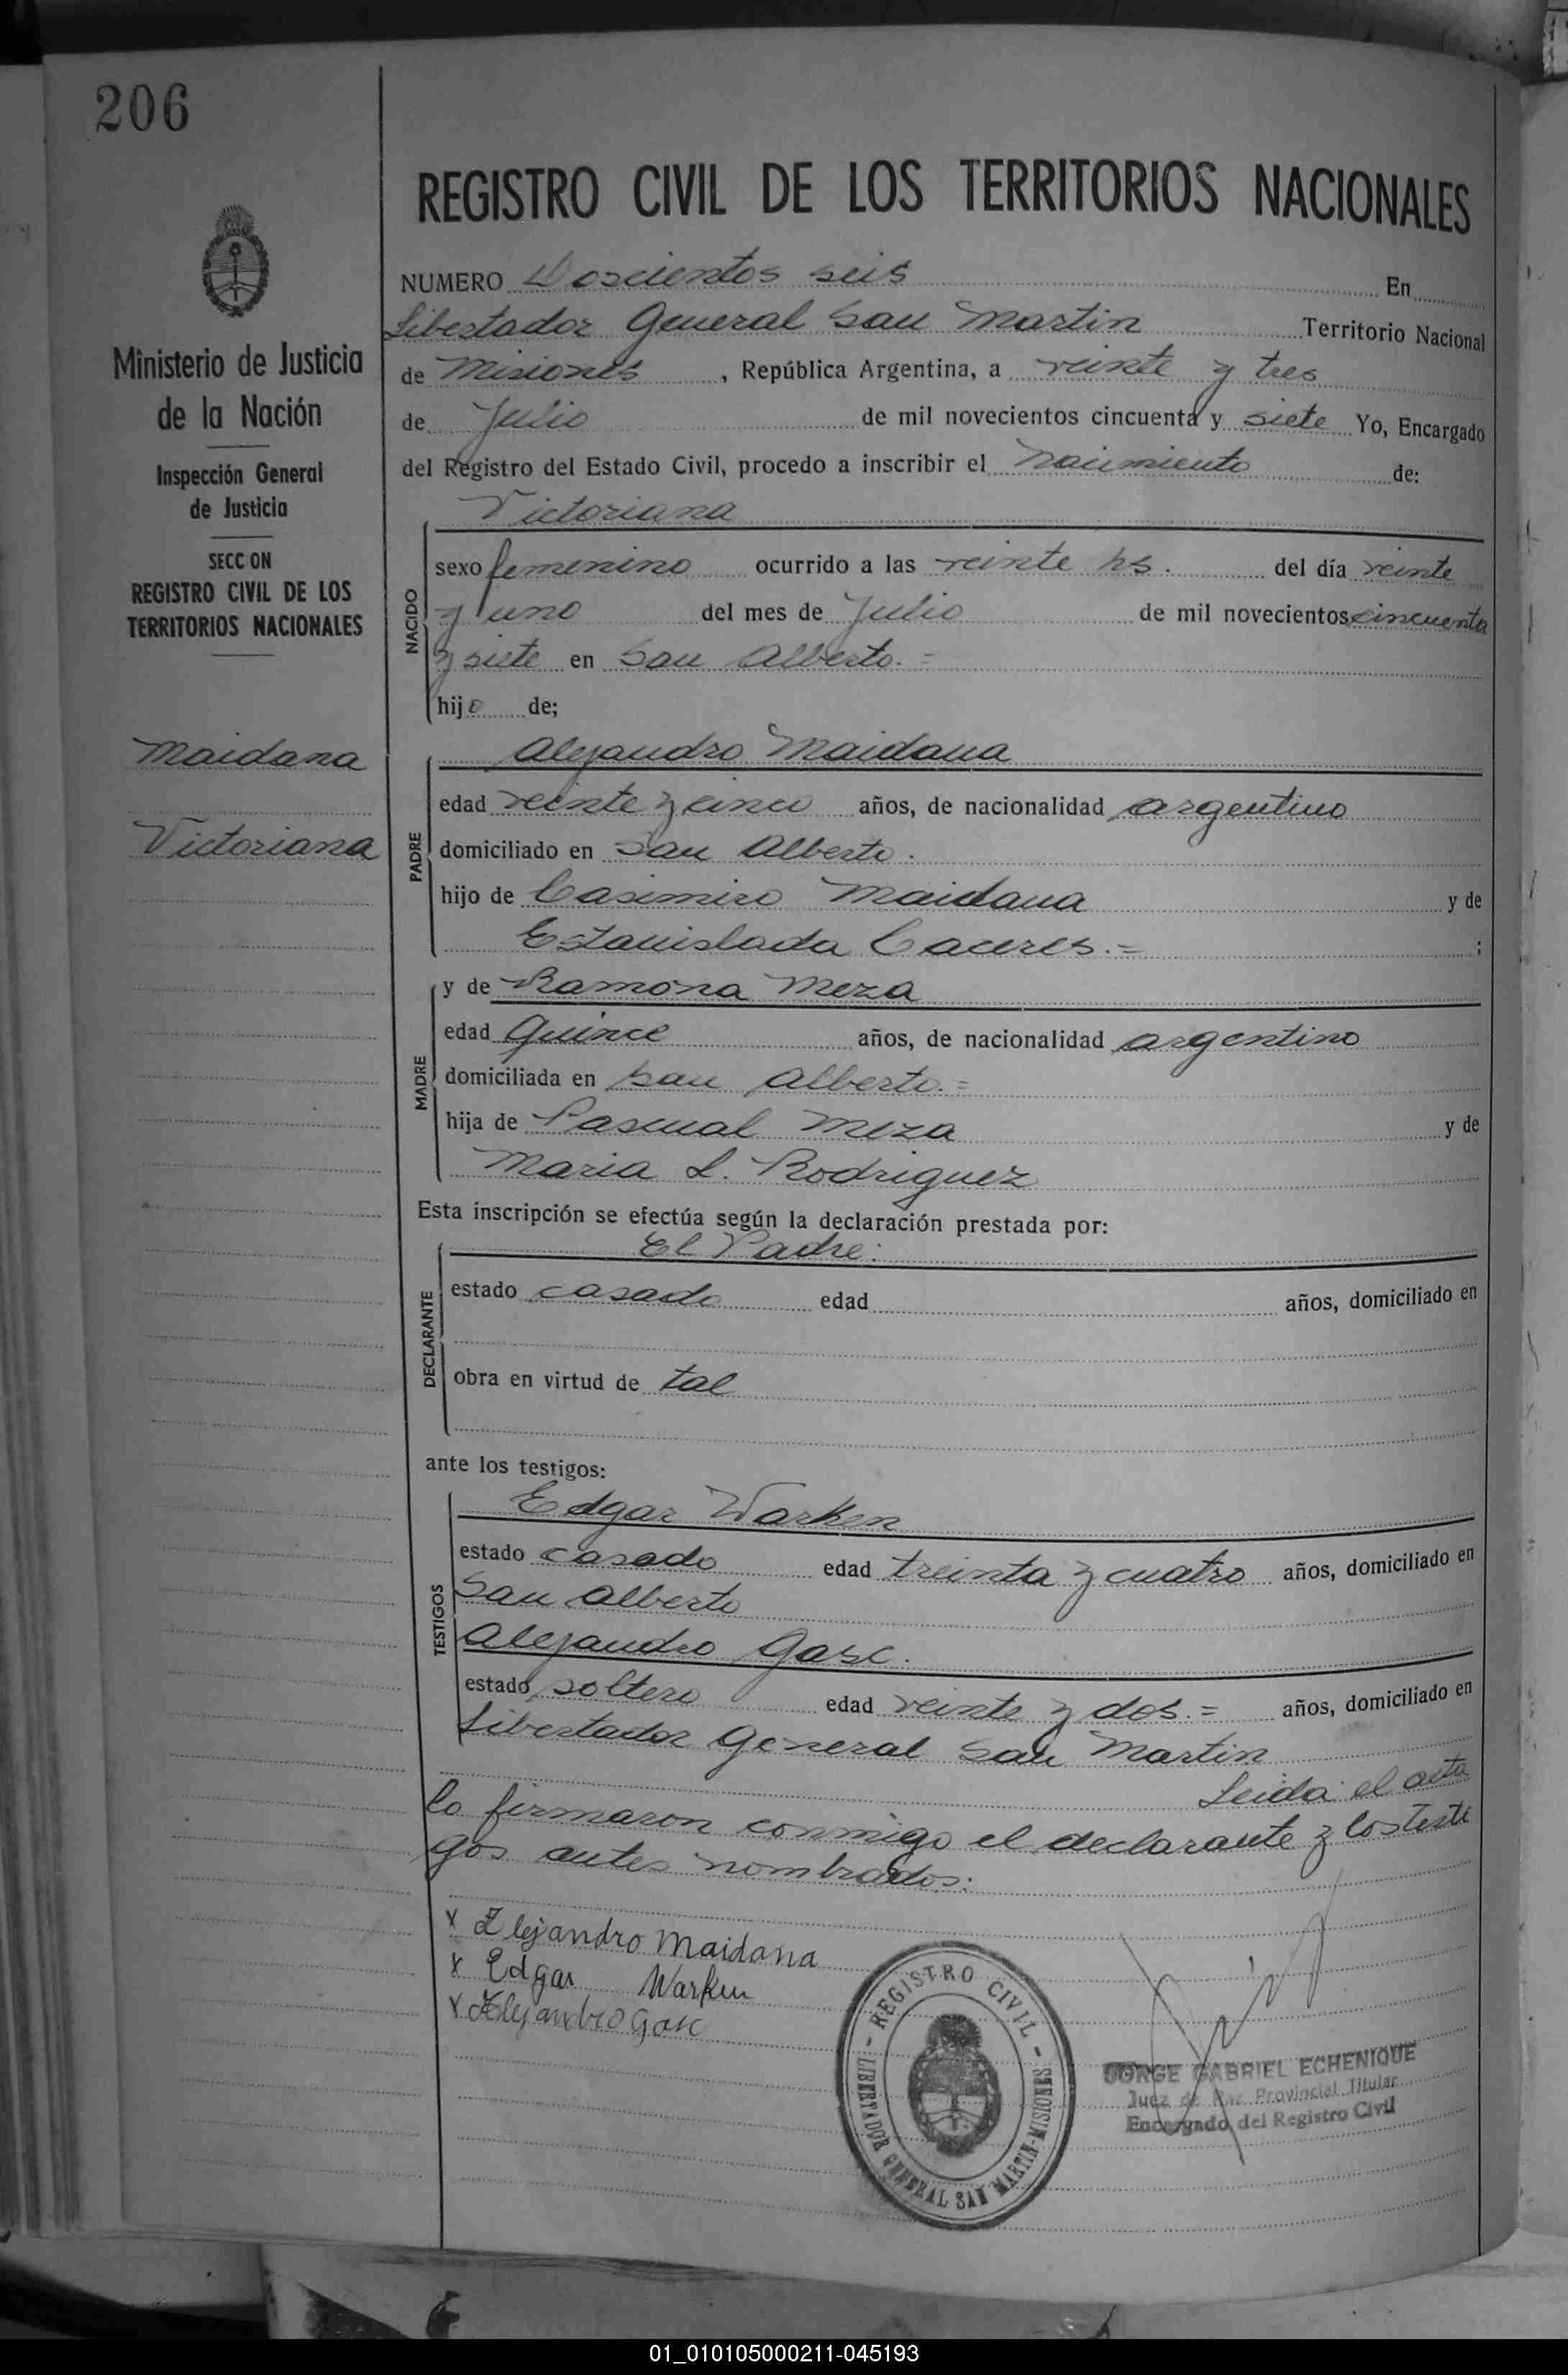 206
REGISTRO CIVIL DE LOS TERRITORIOS NACIONALES
Ministerio de Justicia
de la Nación
Inspección General
de Justicia
SECC ON
REGISTRO CIVIL DE LOS
TERRITORIOS NACIONALES
Maidana
Victoriana
NUMERO Doscientos seis En
Libertador General San Martin Territorio Nacional
de Misiones, República Argentina, a veinte y tres
de Julio de mil novecientos cincuenta y siete Yo, Encargado
del Registro del Estado Civil, procedo a inscribir el nacimiento de:
NACIDO
Victoriana
sexo femenino ocurrido a las veinte hs. del día veinte
y uno del mes de Julio de mil novecientos cincuenta
y siete en San Alberto.=
hijo de;
PADRE
Alejandro Maidana
edad veinte y cinco años, de nacionalidad argentino
domiciliado en San Alberto.
hijo de Casimiro Maidana y de
Estanislada Caceres.= ;
MADRE
y de Ramona Meza
edad Quince años, de nacionalidad argentino
domiciliada en San Alberto.=
hija de Pascual Meza y de
Maria L. Rodriguez
Esta inscripción se efectúa según la declaración prestada por:
DECLARANTE
El Padre:
estado casado edad años, domiciliado en
obra en virtud de tal
ante los testigos:
TESTIGOS
Edgar Warken
estado casado edad treinta y cuatro años, domiciliado en
San Alberto
Alejandro Gasc.
estado soltero edad veinte y dos.= años, domiciliado en
Libertador General San Martin
Leida el acta
la firmaron conmigo el declarante y los testi
gos antes nombrados:
x Alejandro Maidana
x Edgar Warken
x Alejandro Gasc
REGISTRO CIVIL
LIBERTADOR GENERAL SAN MARTIN-MISIONES
JORGE GABRIEL ECHENIQUE
Juez de Paz Provincial Titular
Encargado del Registro Civil
01_010105000211-045193